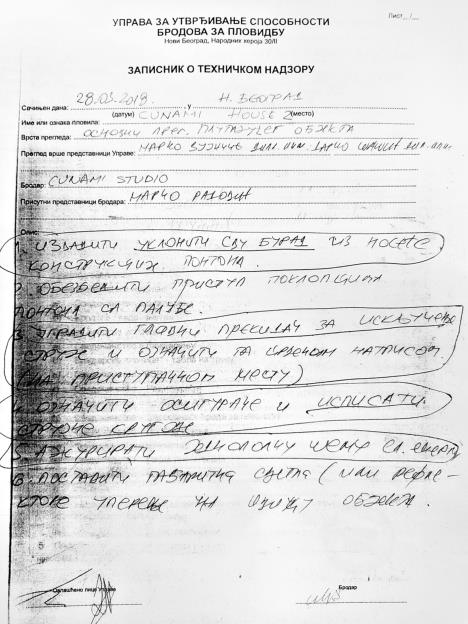 Лист __/__
УПРАВА ЗА УТВРЂИВАЊЕ СПОСОБНОСТИ
БРОДОВА ЗА ПЛОВИДБУ
Нови Београд, Народних хероја 30/II
ЗАПИСНИК О ТЕХНИЧКОМ НАДЗОРУ
Сачињен дана: 28.03.2019. у Н. БЕОГРАД
(датум) (место)
Име или ознака пловила: CUNAMI HOUSE 2
Врста прегледа: ОСНОВНИ ПРЕГ. ПЛУТАЈУЋЕГ ОБЈЕКТА
Преглед врше представници Управе: МАРКО ДИПЛ. ИНЖ. ДАРКО
Бродар: CUNAMI STUDIO
Присутни представници бродара: МАРКО
Опис:
1. ИЗВАДИТИ УКЛОНИТИ СВУ БУРАД ИЗ НОСЕЋЕ
КОНСТРУКЦИЈЕ ПОНТОНА.
2. ОБЕЗБЕДИТИ ПРИСТУП ПОКЛОПЦИМА
ПОНТОНА СА ПАЛУБЕ.
3. УГРАДИТИ ГЛАВНИ ПРЕКИДАЧ ЗА ИСКЉУЧЕЊЕ
СТРУЈЕ И ОЗНАЧИТИ ГА ЦРВЕНОМ НАТПИСОМ
(НА ПРИСТУПАЧНОМ МЕСТУ)
4. ОЗНАЧИТИ ОСИГУРАЧЕ И ИСПИСАТИ
СТРУЈНЕ КРУГОВЕ.
5. АЖУРИРАТИ ШЕМУ ЕЛ.
6. ПОСТАВИТИ ГАБАРИТНА СВЕТЛА (ИЛИ РЕФЛЕ-
КТОРЕ УПЕРЕНЕ НА ОБЈЕКТА.
Овлашћено лице Управе
Бродар